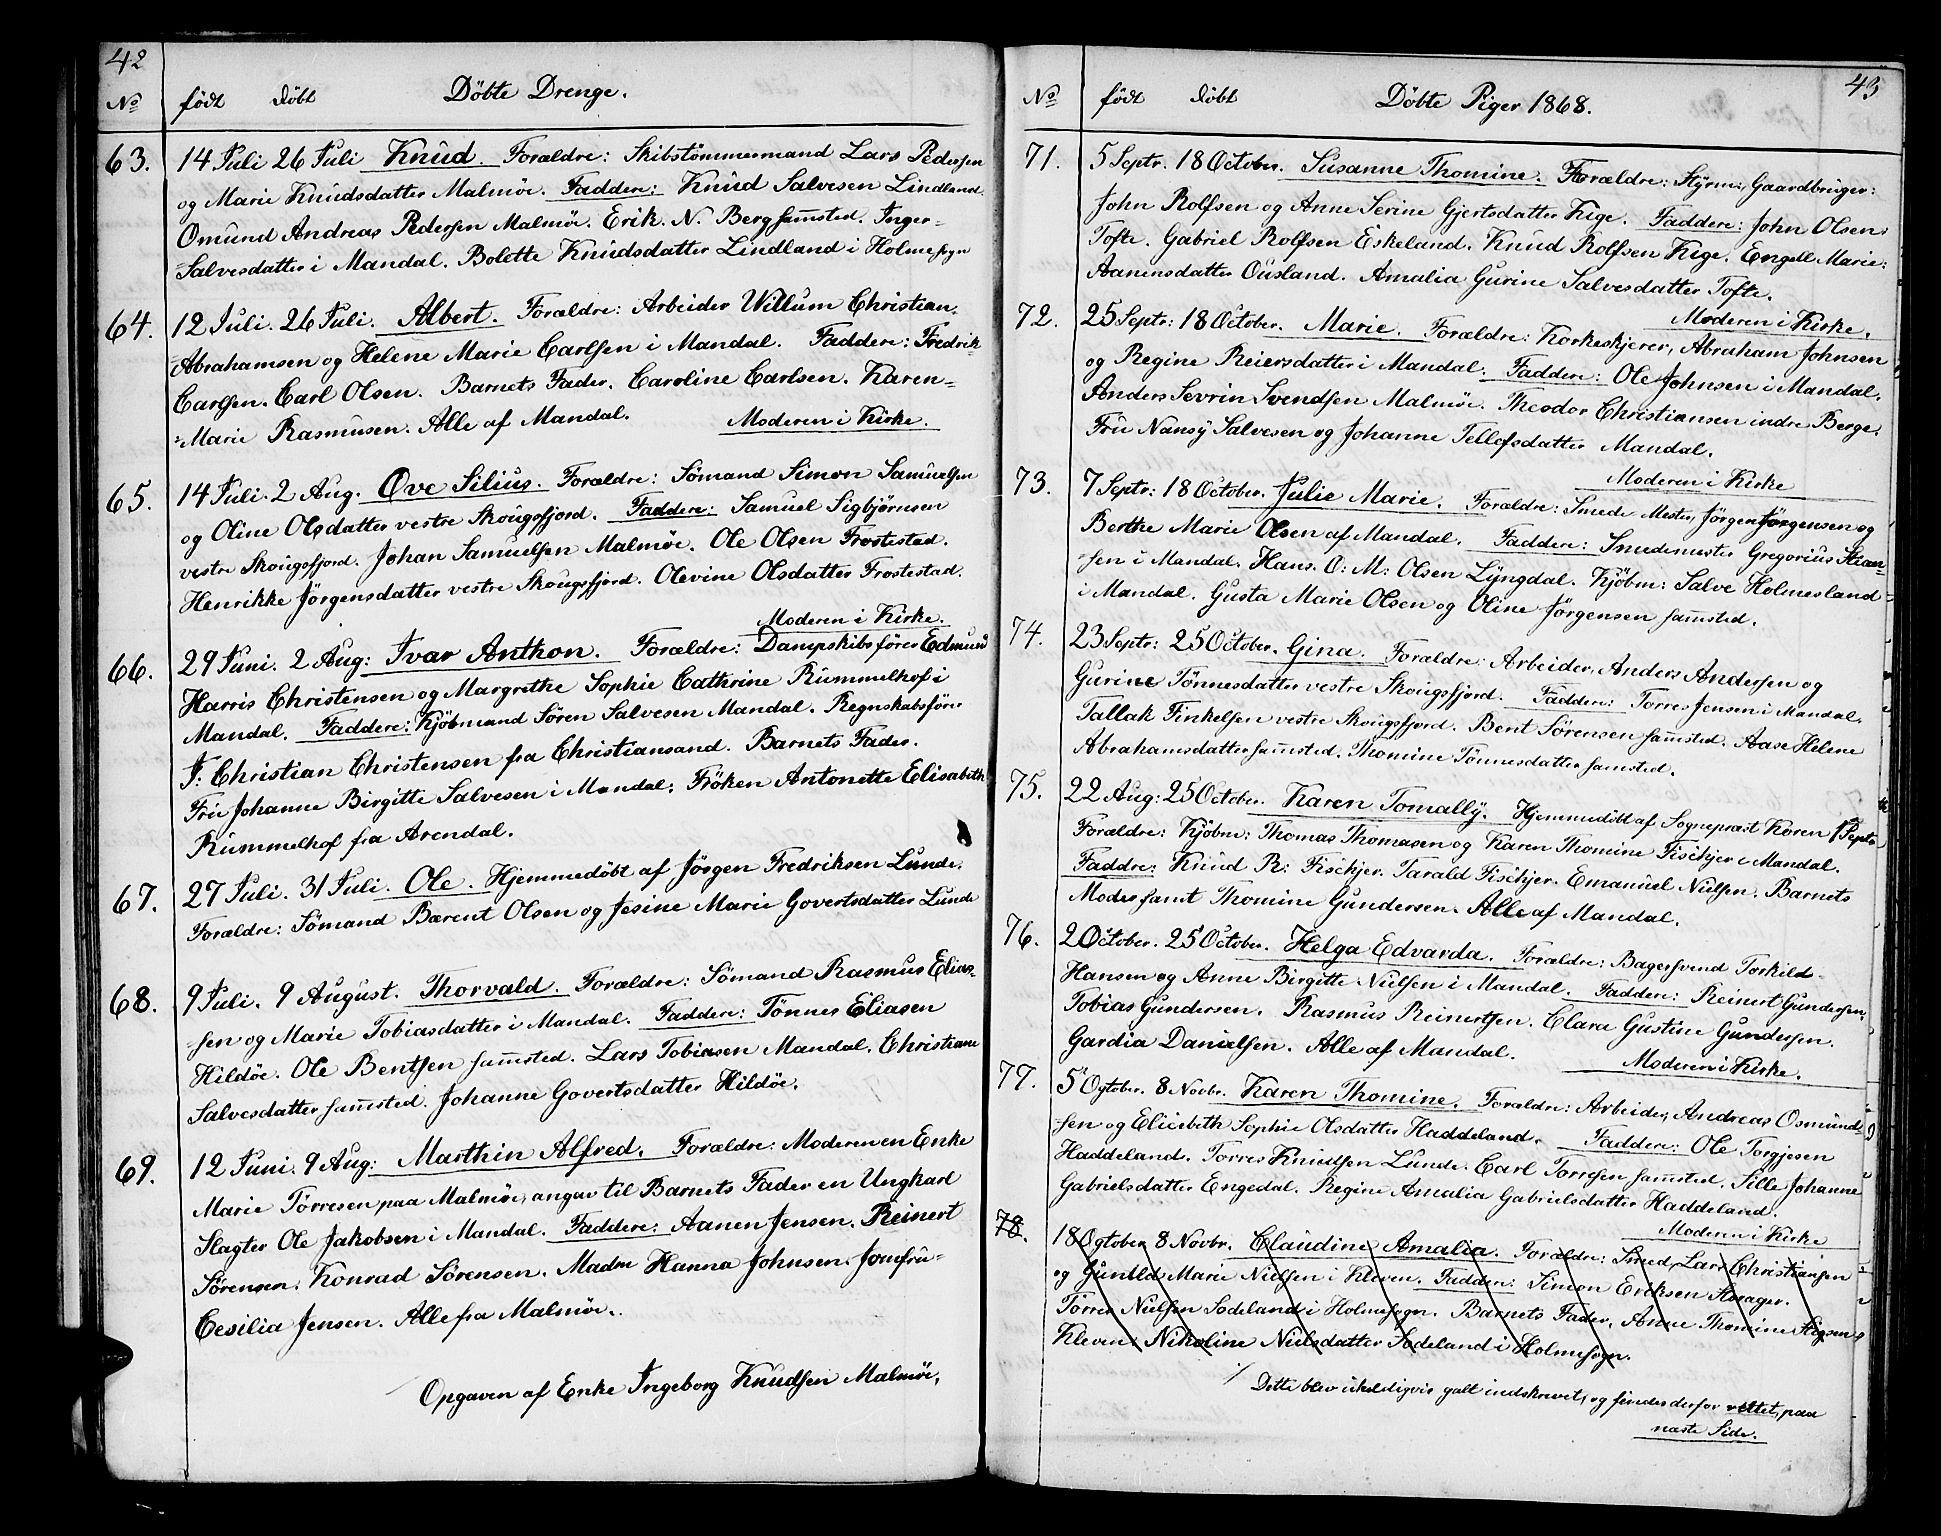 42
No født døbt Döbte Drenge.
63. 14 Juli 26 Juli Knud. Forældre: Skibstömmermand Lars Pedersen
og Marie Knudsdatter Malmöe. Faddere: Knud Salvesen Lindland.
Omund Andreas Pedersen Malmöe. Erik. N. Berg sam̄sted. Inger-
Salvesdatter i Mandal. Bolette Knudsdatter Lindland i Holme sogn
64. 12 Juli. 26 Juli. Albert. Forældre: Arbeider Willum Christian.
Abrahamsen og Helene Marie Carlsen i Mandal. Faddere: Fredrik
Carlsen. Carl Olsen. Barnets Fader. Caroline Carlsen. Karen-
-Marie Rasmusen. Alle af Mandal. Moderen i Kirke.
65. 14 Juli. 2 Aug. Ove Silius. Forældre: Sömand Simon Samuelsen
og Oline Olsdatter vestre Skougsfjord. Faddere: Samuel Sigbjørnsen
vestre Skougsfjord. Johan Samuelsen Malmöe. Ole Olsen Frostestad.
Henrikke Jörgensdatter vestre Skougsfjord. Olevine Olsdatter Frostestad.
Moderen i Kirke.
66. 29 Juni. 2 Aug: Ivar Anthon. Forældre: Dampskibsfører Edmund
Harris Christensen og Margrethe Sophie Cathrine Rummelhof i
Mandal. Faddere: Kjöbmand Sören Salvesen Mandal. Regnskabsfører
J. Christian Christensen fra Christiansand. Barnets Fader.
Fru Johanne Birgitte Salvesen i Mandal. Fröken Antonette Elisabeth
Rummelhof fra Arendal.
67. 27 Juli. 31 Juli. Ole. Hjemmedöbt af Jörgen Fredriksen Lunde.
Forældre: Sömand Bærent Olsen og Jesine Marie Govertsdatter Lunde
68. 9 Juli. 9 August. Thorvald. Forældre: Sömand Rasmus Elias-
sen og Marie Tobiasdatter i Mandal. Faddere: Tönnes Eliasen
Hildöe. Ole Bentsen sam̄sted. Lars Tobiasen Mandal. Christiane
Salvesdatter sam̄sted. Johanne Govertsdatter Hildöe.
69. 12 Juni. 9 Aug: Marthin Alfred. Forældre: Moderen en Enke
Marie Törresen paa Malmöe, angav til Barnets Fader en Ungkarl
Slagter Ole Jakobsen i Mandal. Faddere: Aanen Jensen. Reinert
Sörensen. Konrad Sörensen. Madm Hanna Johnsen. Jomfru-
Cesilia Jensen. Alle fra Malmöe.
Opgaven af Enke Ingeborg Knudsen Malmöe.
43
No født døbt Döbte Piger 1868.
71. 5 Septr. 18 October. Susanne Thomine. Forældre: Styrm: Gaardbruger:
John Rolfsen og Anne Serine Gjertsdatter Kige. Faddere: John Olsen
Tofte. Gabriel Rolfsen Eskeland. Knud Rolfsen Kige. Engell Marie:
Aanensdatter Ousland. Amalia Gurine Salvesdatter Tofte.
Moderen i Kirke.
72. 25 Septr: 18 October. Marie. Forældre: Korkeskjerer, Abraham Johnsen
og Regine Reiersdatter i Mandal. Faddere: Ole Johnsen i Mandal.
Anders Sevrin Svendsen Malmöe. Theodor Christiansen indre Berge.
Fru Nansy Salvesen og Johanne Tellefsdatter Mandal.
Moderen i Kirke
73. 7 Septr: 18 October. Julie Marie. Forældre: Smede Mester, Jörgen Jörgensen og
Berthe Marie Olsen af Mandal. Faddere: Smedemester Gregorius
sen i Mandal. Hans. O: M: Olsen Lyngdal. Kjöbm: Salve Holmesland
i Mandal. Gusta Marie Olsen og Oline Jörgensen sam̄sted.
74. 23 Septr: 25 October. Gina. Forældre: Arbeider, Anders Andersen og
Gurine Tönnesdatter vestre Skougsfjord. Faddere: Torres Jensen i Mandal.
Tallak Finkelsen vestre Skougsfjord. Berit Sörensen sam̄sted. Aase Helene
Abrahamsdatter sam̄sted. Thomine Tönnesdatter samsted.
75. 22 Aug: 25 October. Karen Tomally. Hjemmedöbt af Sognepræst Koren 1 Septr
Forældre: Kjöbm: Thomas Thomasen og Karen Thomine Fischjer i Mandal.
Faddre: Knud R: Fischjer. Tarald Fischjer. Emanuel Nielsen. Barnets
Moder samt Thomine Gundersen. Alle af Mandal.
76. 2 October. 25 October. Helga Edvarda. Forældre: Bagersvend Torkild-
Hansen og Anne Birgitte Nielsen i Mandal. Faddere: Reinert Gundersen.
Tobias Gundersen. Rasmus Reinertsen. Clara Gustine Gundersen.
Gardia Danielsen. Alle af Mandal. Moderen i Kirke.
77. 5 October. 8 Novbr. Karen Thomine. Forældre: Arbeider, Andreas Osmund-
sen og Eliesbeth Sophie Olsdatter Haddeland. Faddere: Ole Torgjesen
Haddeland. Torres Knudsen Lunde. Carl Torresen samsted. Sille Johanne
Gabrielsdatter Engedal. Regine Amalia Gabrielsdatter Haddeland.
Moderen i Kirke
78. 18 October 8 Novbr. Claudine Amalia. Forældre: Smed, Lars Christiansen
og Gunild Marie Nielsen i Kleven. Fadder: Simon Eriksen
Törres Nielsen Sodeland i Holmesogn. Barnets Fader. Anne Thomine
Kleven. Nikoline Nielsdatter Sodeland i Holmesogn.
Dette blev uheldigvis galt indskrevet, og findes derfor rettet, paa
næste Side.